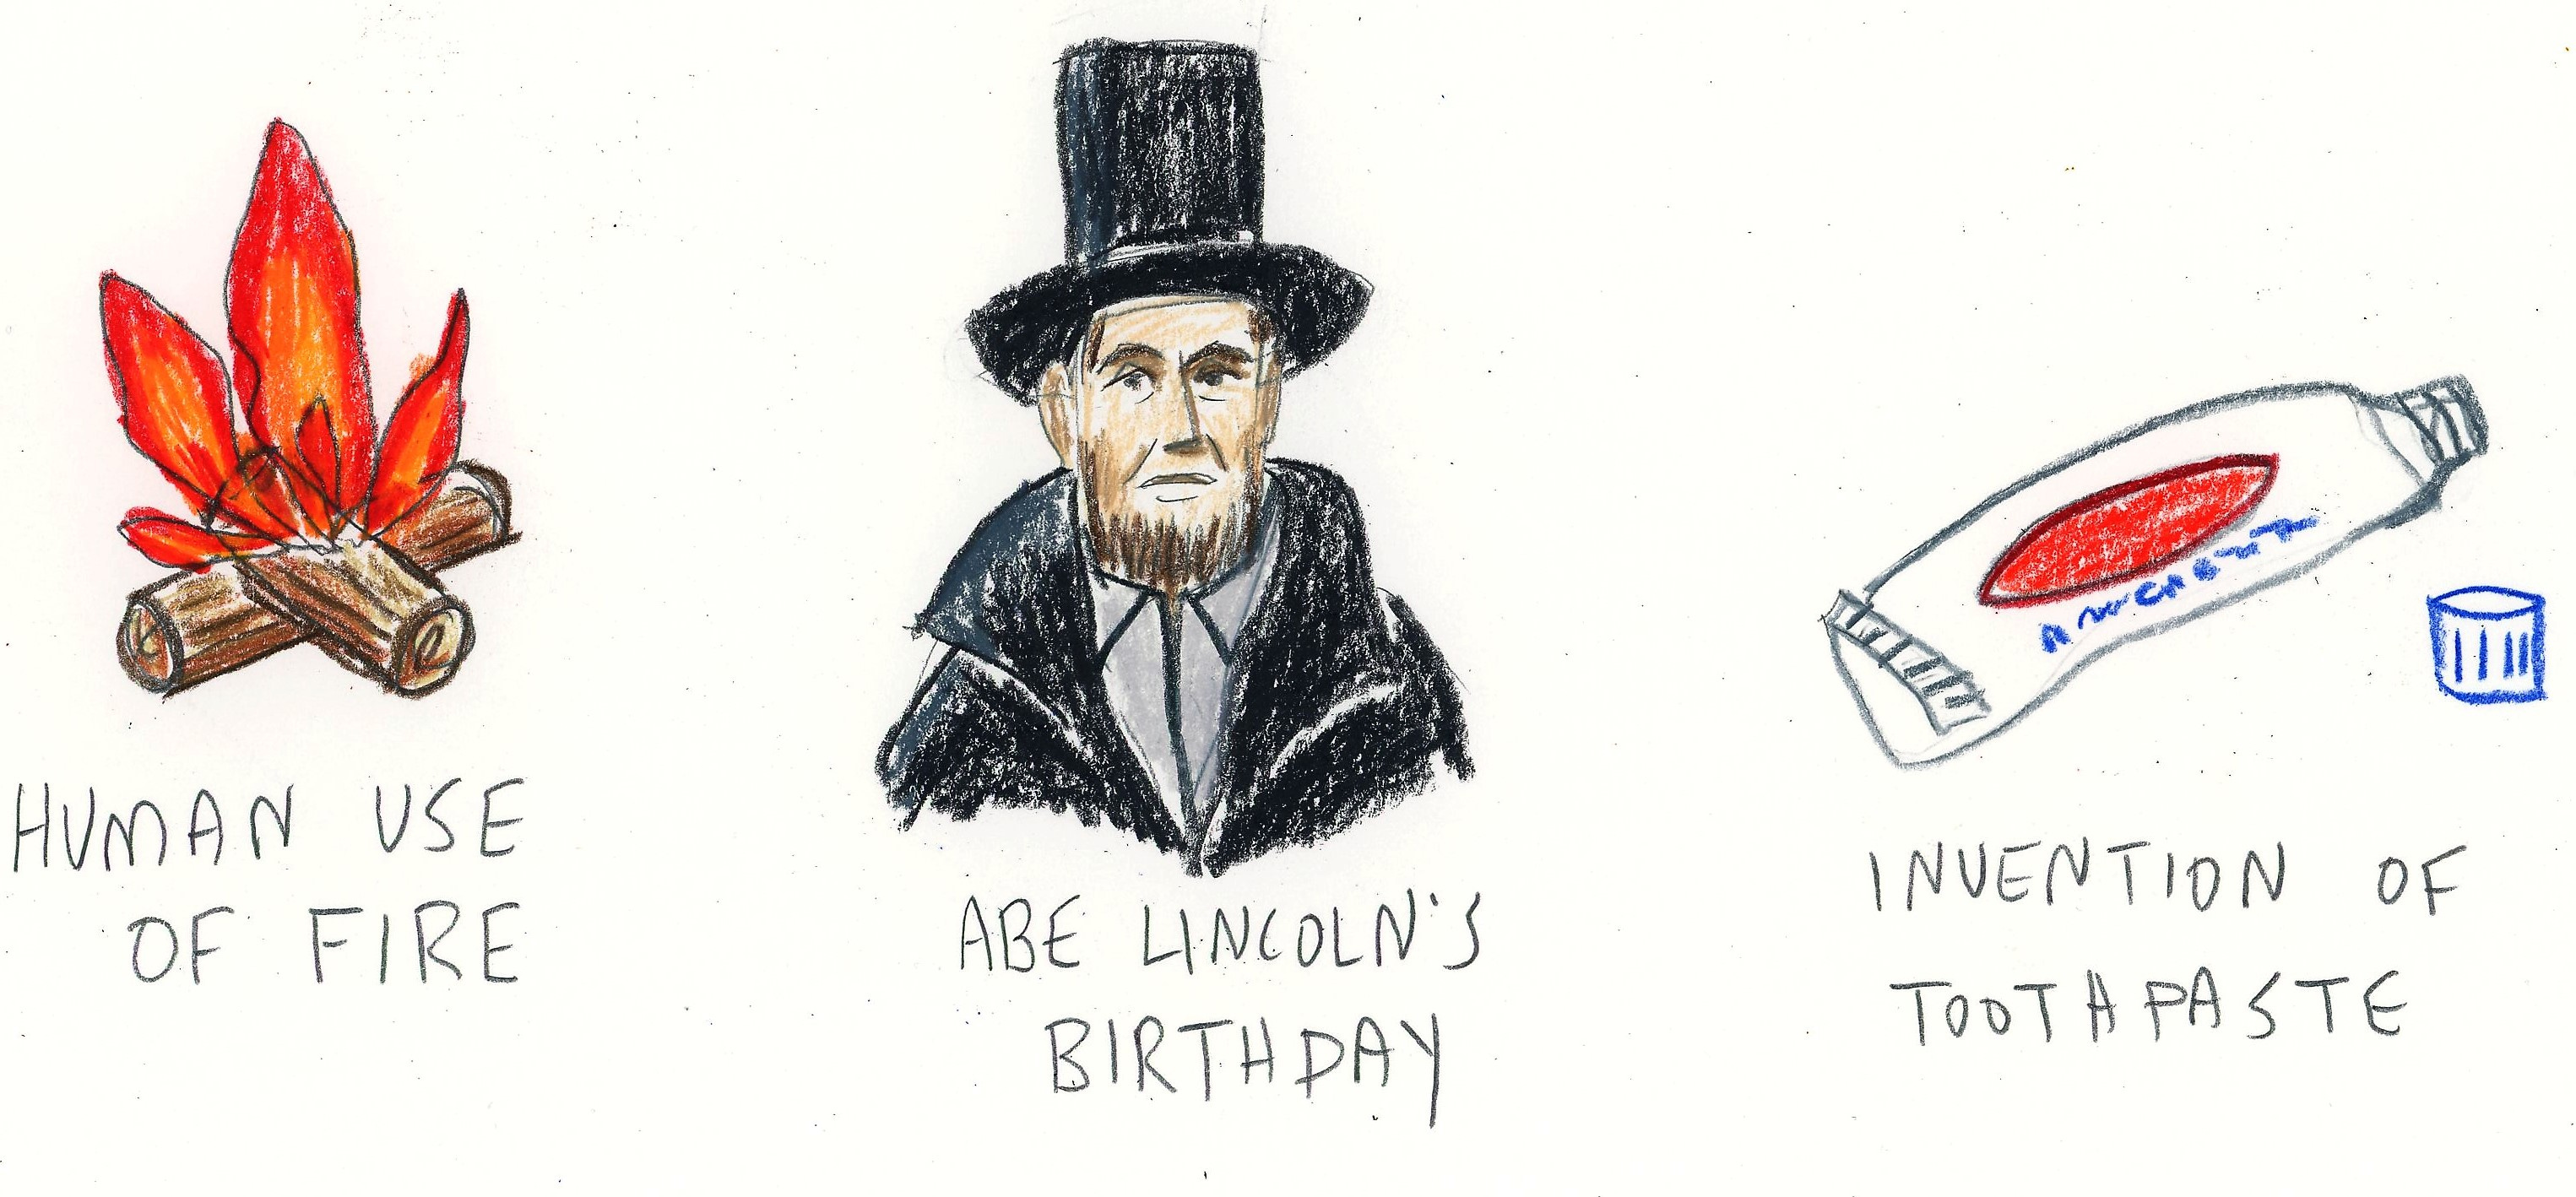 HUMAN USE
OF FIRE
ABE LINCOLN'S
BIRTHDAY
INVENTION OF
TOOTHPASTE